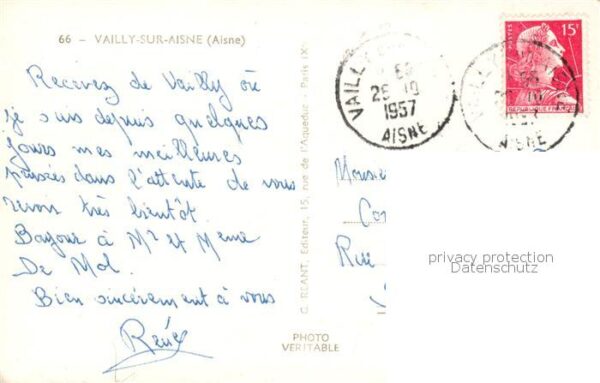 66 - VAILLY-SUR-AISNE (Aisne)
Recevez de Vailly où
je suis depuis quelques
jours mes meilleures
pensées dans l'attente de vous
revoir très bientôt.
Bonjour à Mr et Meme
De Mol.
Bien sincèrement à vous
René
C. REANT, Editeur, 15, rue de l'Aqueduc - Paris (Xe)
PHOTO
VERITABLE
VAILLY
26-10
1957
AISNE
POSTES
15F
VAILLY
AISNE
Monsie
Co
Rue
privacy protection
Datenschutz